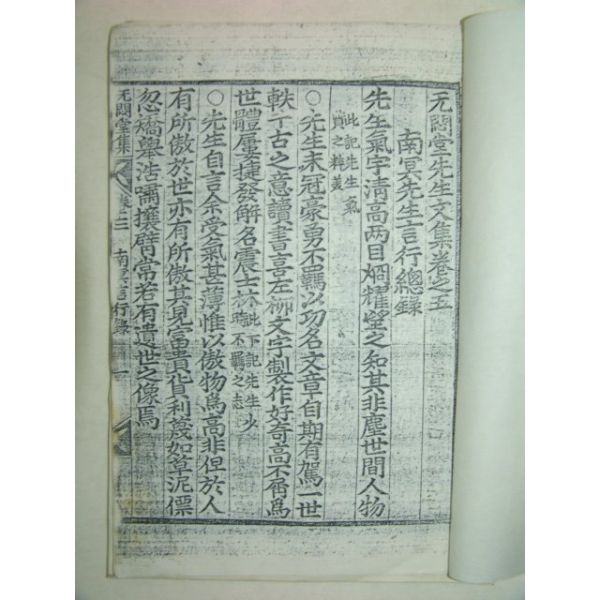 无悶堂先生文集卷之五
南冥先生言行總錄
先生氣宇淸高两目炯耀望之知其非塵世間人物
此記先生氣
質之粹美
○先生未冠豪勇不羈以功名文章自期有駕一世
軼千古之意讀書喜左柳文字製作好奇高不屑爲
世體屢捷發解名震士林此下記先生少
時不羈之志
○先生自言余受氣甚薄惟以傲物爲高非但於人
有所傲於世亦有所傲其見富貴貨利蔑如草泥僄
忽矯擧浩嘯攘臂常若有遺世之像焉
无悶堂集 南冥言行錄 一